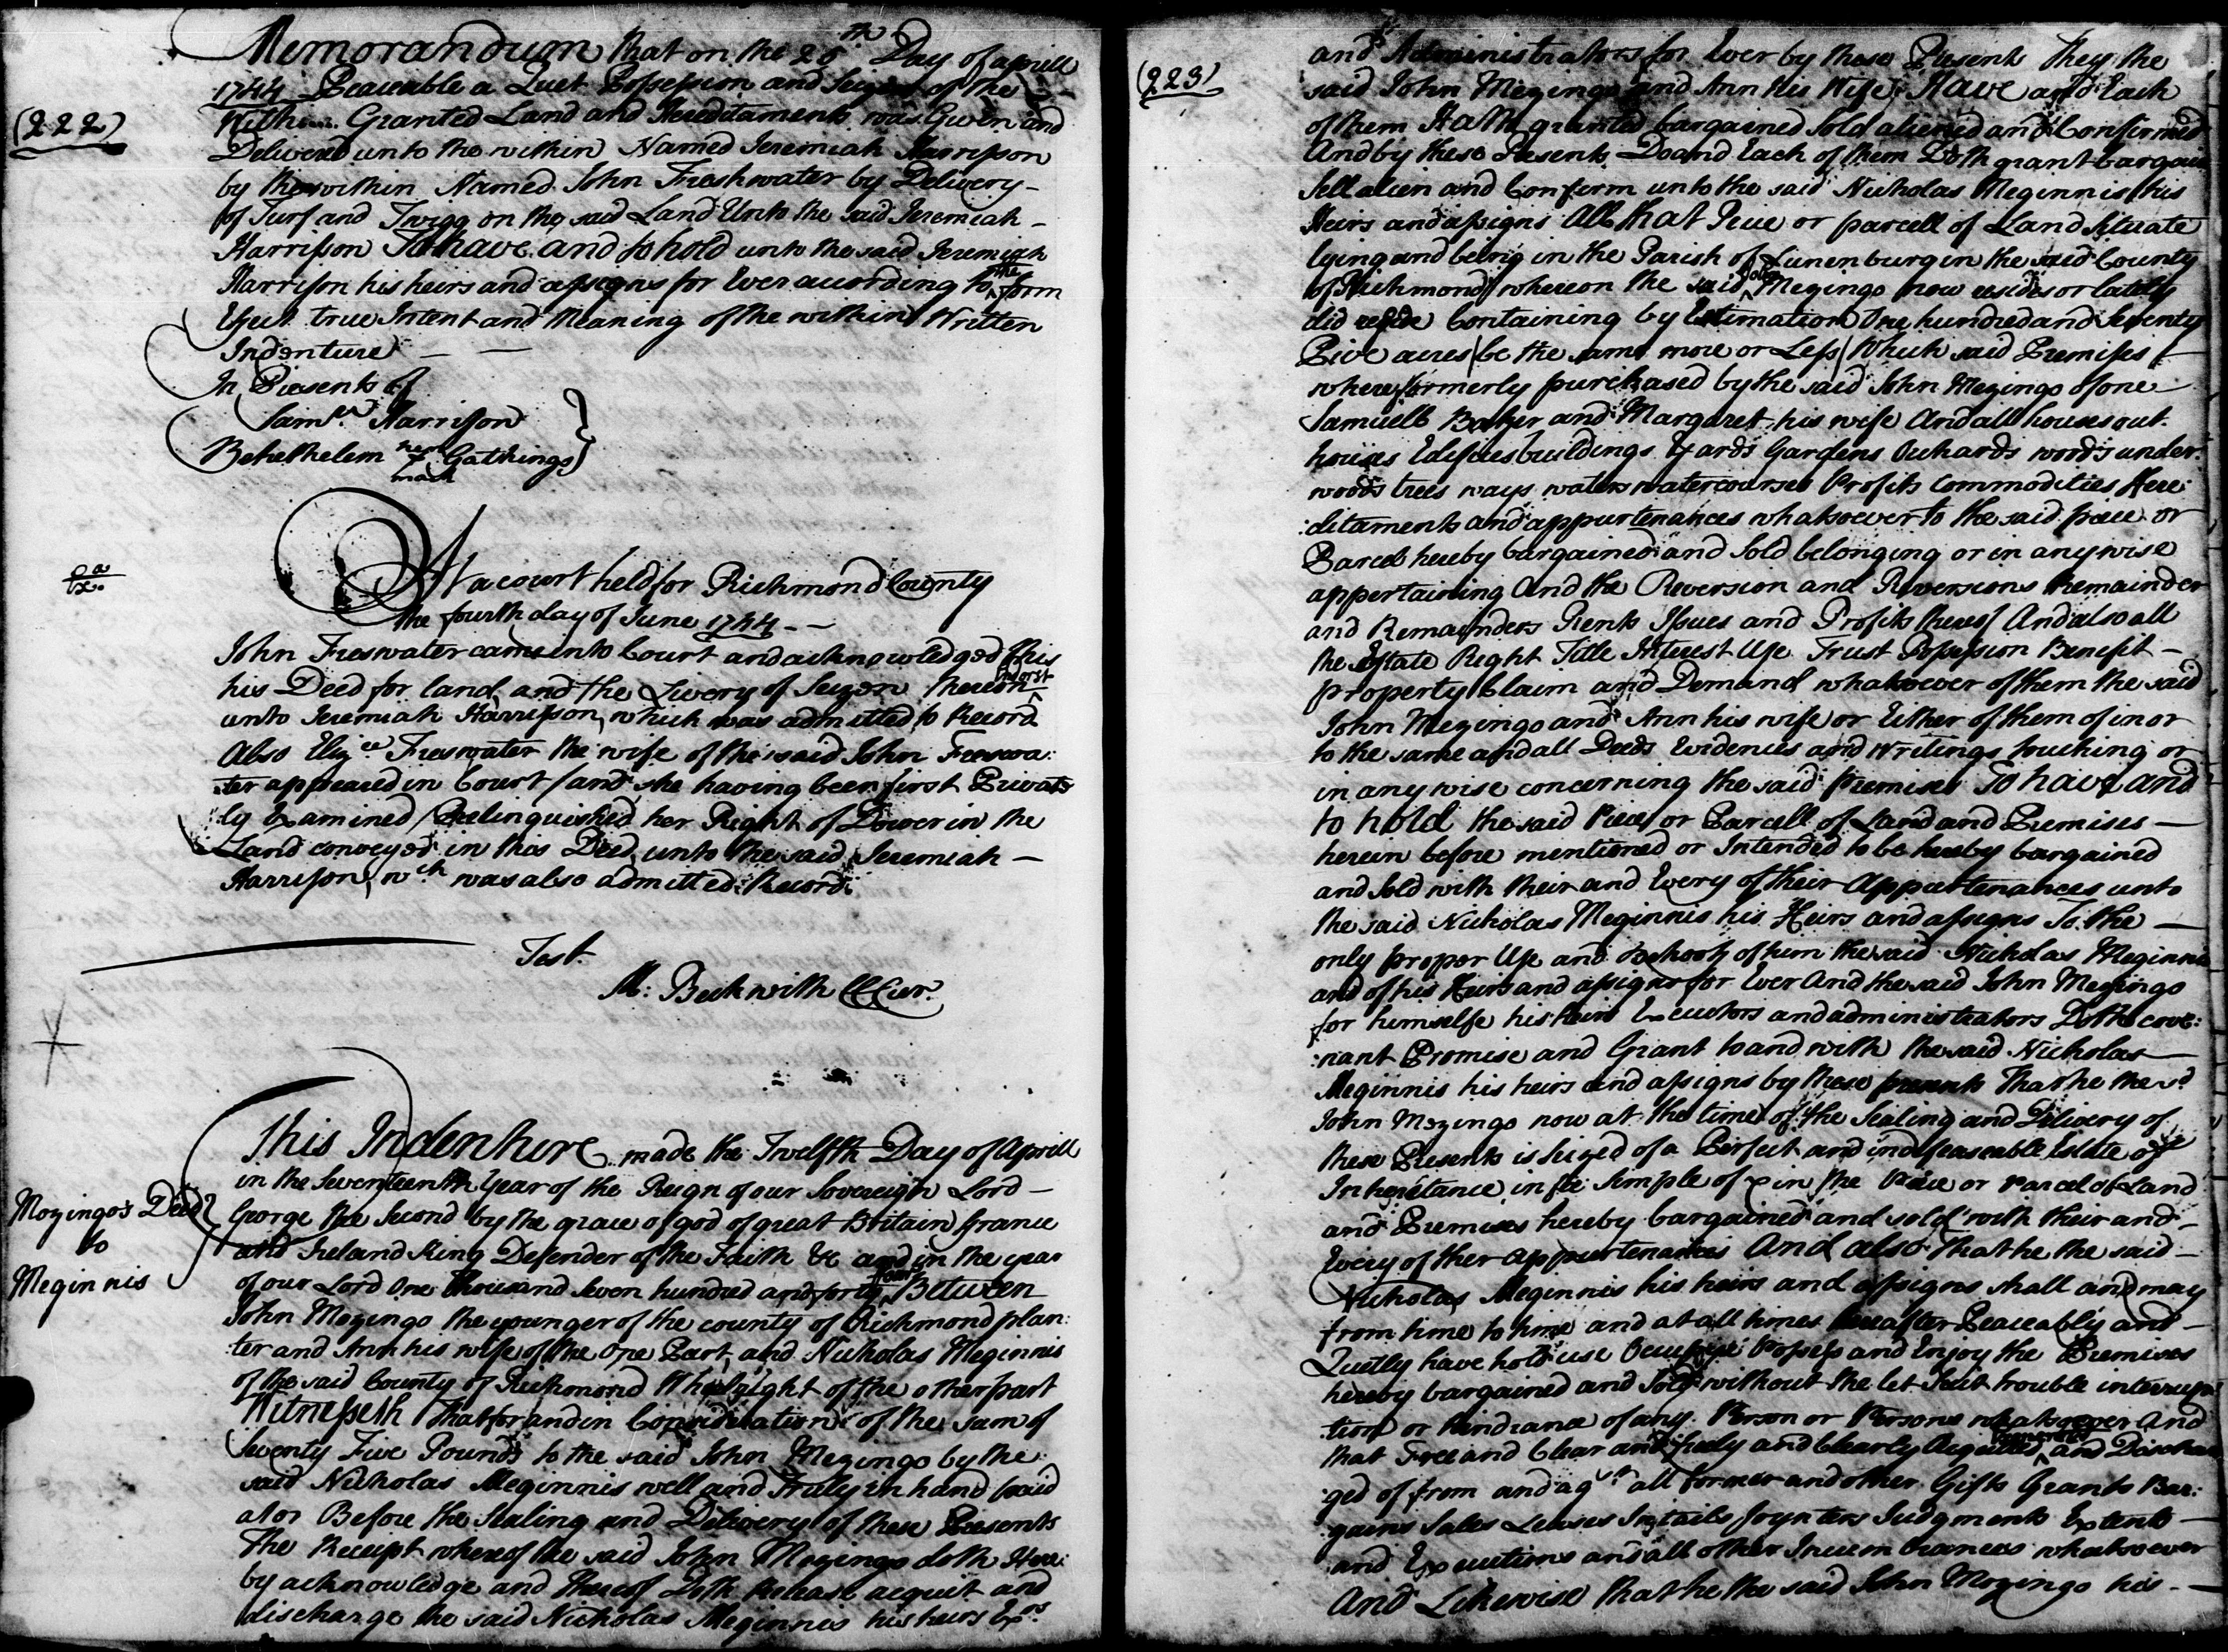 Memorandum that on the 26th Day of aprill
1744 Peaceable a Quet Possession and Seizen of the
(222)
Within Granted Land and Hereditaments was Given and
Delivered unto the within Named Jeremiah Harrisson
by the within Named John Freshwater by Delivery
of Turf and Twigg on the said Land Unto the said Jeremiah
Harrisson To have and to hold unto the said Jeremiah
Harrisson his heirs and assigns for Ever according to the form
Efect true Intent and Meaning of the within Written
Indenture
In Presents of
Samll. Harrisson
Bethelhelem her mark Gathings
At a court held for Richmond County
the fourth day of June 1744
John Freswater came into Court and acknowledged this
his Deed for land and the Livery of Seizen thereon Indorst
unto Jeremiah Harrisson, which was admitted to Record
Also Eliz. Freswater the wife of the said John Freswa:
:ter appeared in Court (and she having been first Private
ly Examined) Relinquished her Right of Dower in the
Land conveyed in this Deed unto the said Jeremiah
Harrisson, wch was also admitted Record.
Test.
M: Beckwith CCCur.
This Indenture made the Twelfth Day of Aprill
in the Seventeenth Year of the Reign of our Sovereign Lord
Mozingo's Deed
to
Meginnis
George the Second by the grace of god of great Britain france
and Ireland King Defender of the Faith &c and in the year
of our Lord One Thousand Seven hundred and forty four Between
John Mozingo the younger of the county of Richmond plan:
:ter and Ann his wife of the One Part and Nicholas Meginnis
of the said County of Richmond Wheelright of the other part
Witnesseth That for and in Consideration of the Sum of
Seventy Five Pounds to the said John Mozingo by the
said Nicholas Meginnis well and Truly in hand paid
at or Before the Sealing and Delivery of these Presents
The Receipt whereof the said John Mozingo doth Here:
by acknowledge and thereof Doth Release acquit and
discharge the said Nicholas Meginnis his heirs Exrs
(223)
and Administrators for Ever by these Presents They the
said John Mozingo and Ann his Wife Have and Each
of them Hath granted bargained Sold aliened and Confirmed
And by these Presents Do and Each of them Doth grant bargain
Sell alien and Confirm unto the said Nicholas Meginnis his
Heirs and assigns All that Peice or parcell of Land Situate
lying and being in the Parish of Lunenburg in the said County
of Richmond whereon the said John Mozingo now resides or lately
did reside Containing by Estimation One hundred and Seventy
Five acres (be the same more or Less) Which said Premises
where formerly purchased by the said John Mozingo of one
Samuell Baker and Margaret his wife And all houses out
houses Edifices buildings Yards Gardens Orchards woods under
woods trees ways waters watercourses Profits Commodities Here:
:ditaments and appurtenances whatsoever to the said peice or
Parcel hereby bargained and Sold belonging or in any wise
appertaining And the Reversion and Reversions Remainder
and Remainders Rents Issues and Profits thereof And also all
the Estate Right Title Interest Use Trust Possession Benefit
property Claim and Demand whatsoever of them the said
John Mozingo and Ann his wife or Either of them of in or
to the same and all Deeds Evidences and Writings touching or
in any wise concerning the said Premises To have and
to hold the said Peice or Parcell of Land and Premises
herein before mentioned or Intended to be hereby bargained
and Sold with their and Every of their Appurtenances unto
the said Nicholas Meginnis his Heirs and assigns To the
only proper Use and behoof of him the said Nicholas Meginnis
and of his Heirs and assigns for Ever And the said John Mozingo
for himselfe his heirs Executors and administrators Doth cove:
:nant Promise and Grant to and with the said Nicholas
Meginnis his heirs and assigns by these presents That he the sd
John Mozingo now at the time of the Sealing and Delivery of
these Presents is Seized of a Perfect and indefeaseable Estate of
Inheritance in fee Simple of & in the Peice or Parcel of Land
and Premises hereby bargained and sold with their and
Every of ther appurtenances And also that he the said
Nicholas Meginnis his heirs and assigns shall and may
from time to time and at all times hereafter Peaceably and
Quietly have hold use Possess and Enjoy the Premises
hereby bargained and Sold without the let Suit trouble interrup
tion or hindrance of any Person or Persons whatsoever And
that Free and Clear and freely and Clearly Acquitted Exonerated and Dischar
ged of from and agst all former and other Gifts Grants Bar:
:gains Sales Leases Joynters Judgments Extents
and Executions and all other Incumbrances whatsoever
And Likewise that he the said John Mozingo his